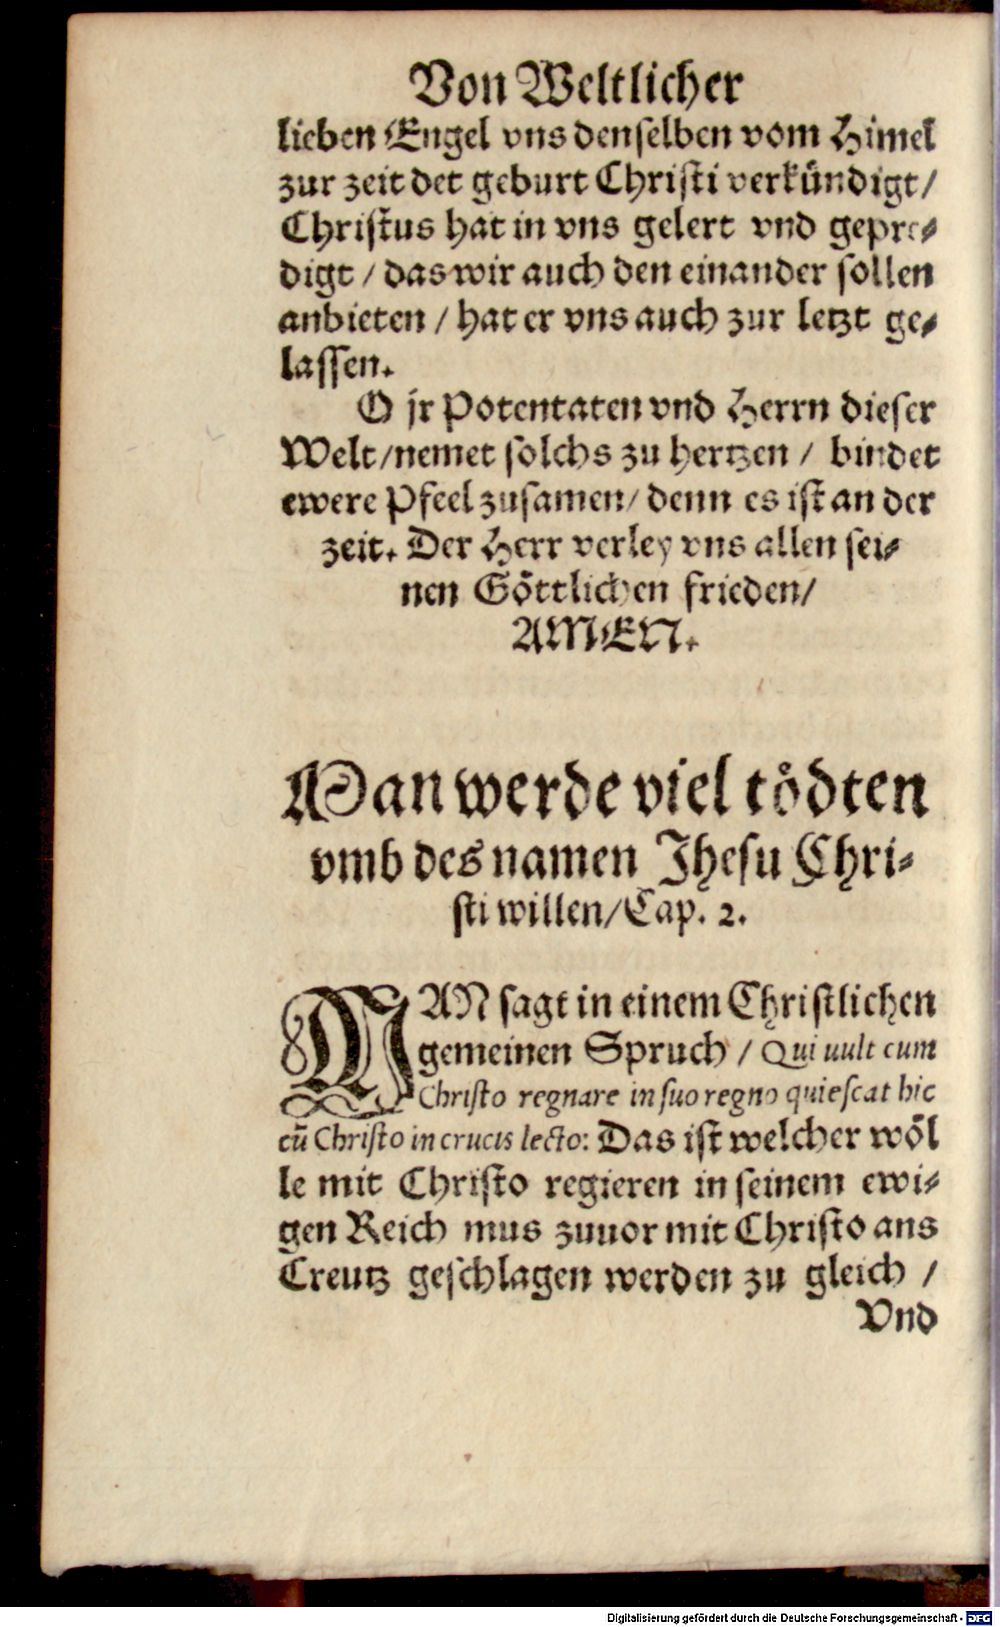 Von Weltlicher
lieben Engel vns denselben vom Himel
zur zeit det geburt Christi verkündigt /
Christus hat in vns gelert vnd gepre-
digt / das wir auch den einander sollen
anbieten / hat er vns auch zur letzt ge-
lassen.
O jr Potentaten vnd Herrn dieser
Welt / nemet solchs zu hertzen / bindet
ewere Pfeel zusamen / denn es ist an der
zeit. Der Herr verley vns allen sei-
nen Göttlichen frieden /
AMEN.
Man werde viel tödten
vmb des namen Jhesu Chri-
sti willen / Cap. 2.
MAN sagt in einem Christlichen
gemeinen Spruch / Qui uult cum
Christo regnare in suo regno quiescat hic
cū Christo in crucis lecto: Das ist welcher wöl
le mit Christo regieren in seinem ewi-
gen Reich mus zuuor mit Christo ans
Creutz geschlagen werden zu gleich /
Vnd
Digitalisierung gefördert durch die Deutsche Forschungsgemeinschaft - DFG